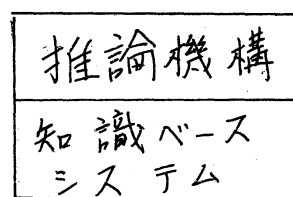 推論機構
知識ベース
システム